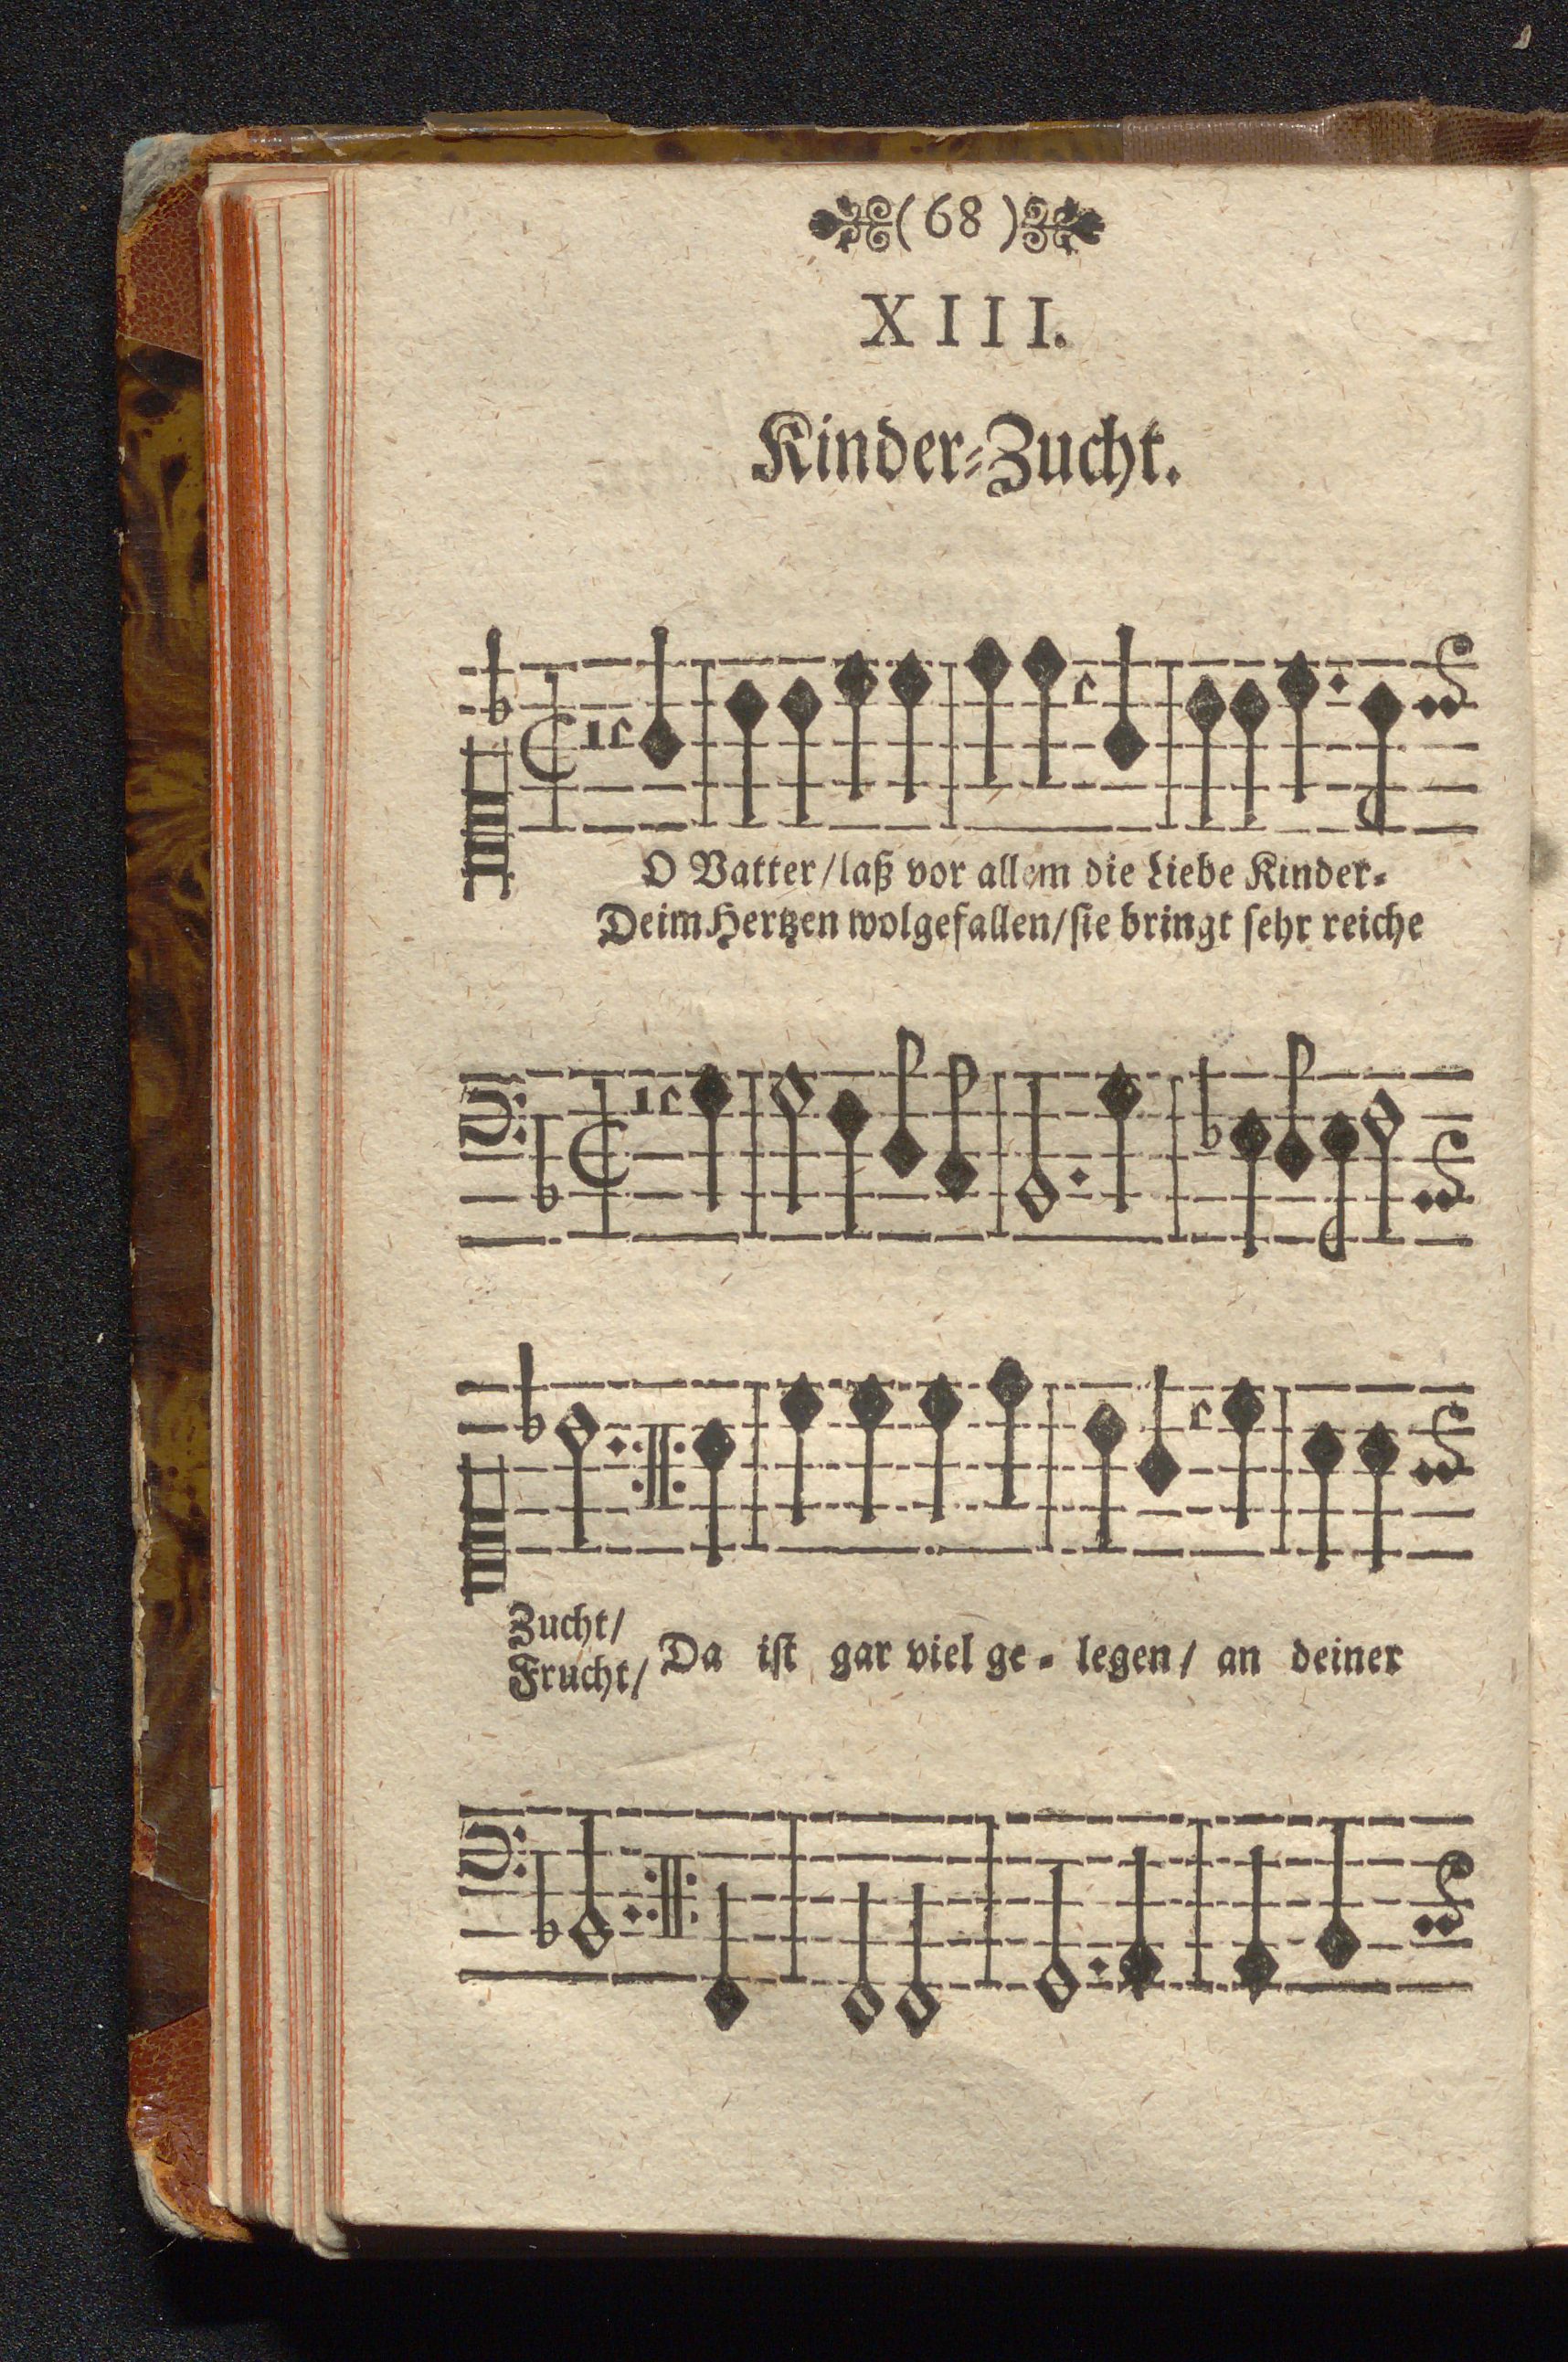 (68)
XIII.
Kinder-Zucht.
O Vatter/laß vor allem die Liebe Kinder-
Deim Hertzen wolgefallen/sie bringt sehr reiche
Zucht/
Frucht/ Da ist gar viel ge- legen/ an deiner